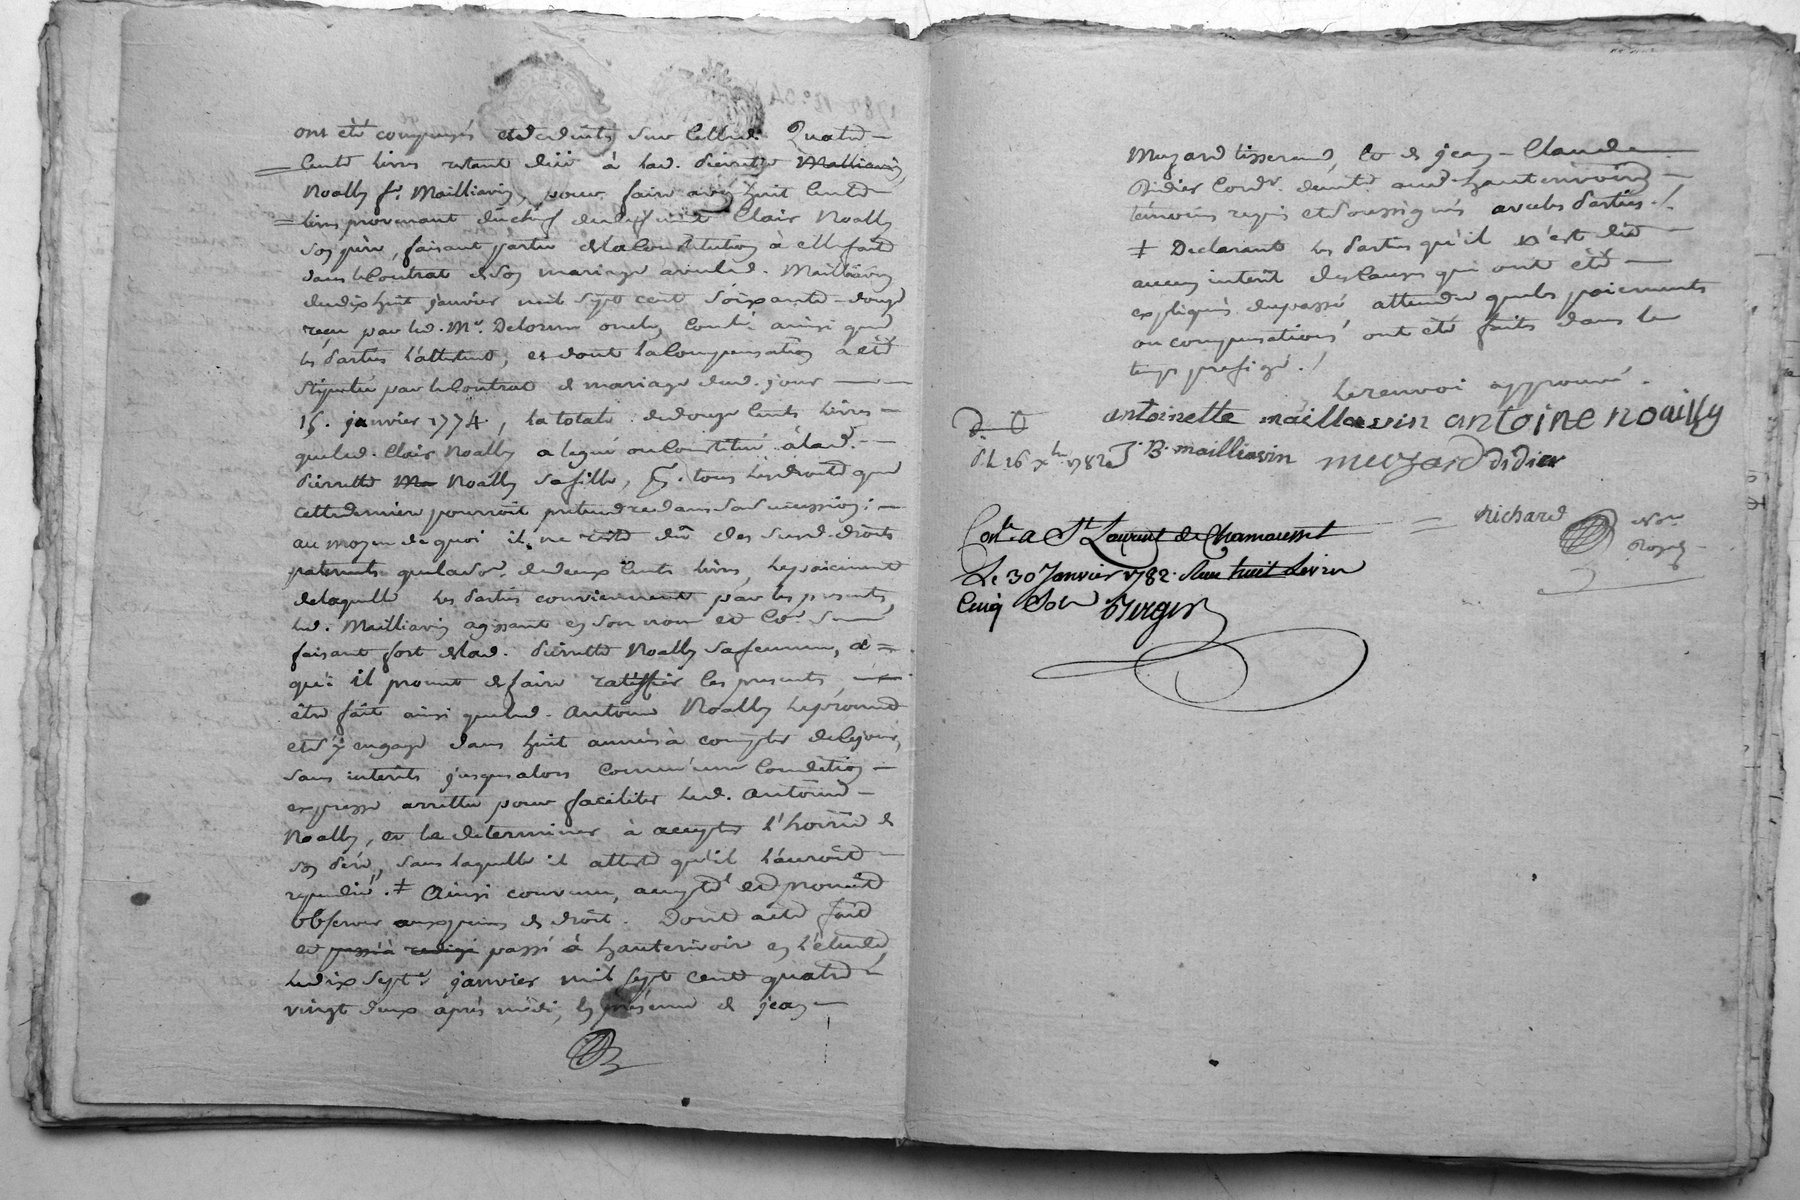 ont été compensés et deduits sur Cettud. Quatre
Cents livres restant dûë à lad. Pierrette Malliavin,
Noally fe. Mailliavin, pour faire avec huit Cents
livres provenant du chef dudefunt Clair Noally
son père, faisant partie de la Constitution à elle faite
dans le Contrat de son mariage avec led. Mailliavin
du dix huit janvier mil sept cent soixante-douze
reçu par led. Me. Delorme ou ainsi que
les Parties l'attestent, et dont la Compensation a été
stipulée par le Contrat de mariage dud. jour
15. janvier 1774., la totale de douze Cents livres
que led. Clair Noally a legué ou Constitué à lad.
Pierrette Ma Noally sa fille, pr. tous les droits que
cette derniere pourroit pretendre dans sa sucession;
au moyen de quoi il ne reste dû des susd. droits
paternels que la so. de deux Cents livres, le paiement
de laquelle les Parties conviennent par les presents,
led. Mailliavin agissant en son nom et Co. se
faisant fort de lad. Pierrette Noally sa femme, à
qui il promet de faire ratiffier les presents,
être fait ainsi que led. Antoine Noally le promet
et s'y engage dans huit années à compter de Ce jour,
sans interêts jusqu'alors comme une Condition
expresse arrettée pour faciliter led. Antoine
Noally, et le determiner à accepter l'hoirie de
son Père, sans laquelle il atteste qu'il l'auroit
repudiée. ‡ Ainsi convenu, accepté et promis
observer aux peines de droit. Dont acte fait
et passé à redigé passé à hauterivoire en l'étude
le dix sept janvier mil sept cent quatre
vingt deux après midi, En présence de jean
Muzard tisserand, et de jean-Claude
Didier Cordr. demts. aud. hauterivoire
témoins requis et soussignés avec les Parties./.
‡ Declarant les Parties qu'il n'est dû
aucun interêt des Causes qui ont été
expliqués du passé, attendu que les paiements
ou compensations ont été faits dans le
temps prefigé./
le renvoi approuvé.
antoinette maillavin antoine noailly
J. B. mailliavin muzard didier
Richard Nore.
Royal
D. O
P. L. 26 Xbre 1782
Conlé. a St Laurent de Chamousset
Le 30 Janvier 1782. Reçu huit Livres
Cinq Sols Berger